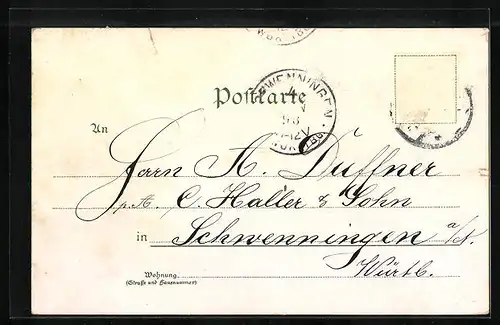 Postkarte
SCHWENNINGEN
4
98
An
Herrn A. Duffner
p. A. C. Haller & Sohn
in Schwenningen a/N.
Württb.
Wohnung
(Straße und Hausnummer)